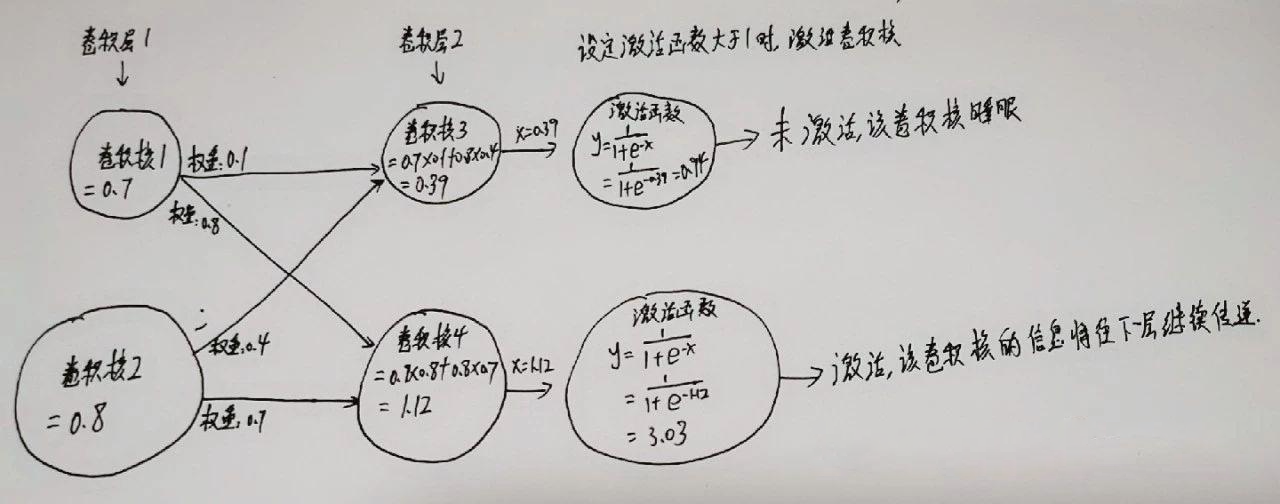 卷积层1
卷积层2
设定激活函数大于1时,激活卷积核
卷积核1
=0.7
权重:0.1
权重:0.8
卷积核3
=0.7×0.1+0.8×0.4
=0.39
x=0.39
激活函数
y=1/(1+e^-x)
=1/(1+e^-0.39)=0.94
未激活,该卷积核睡眠
卷积核2
=0.8
权重:0.4
权重:0.7
卷积核4
=0.8×0.8+0.8×0.7
=1.12
x=1.12
激活函数
y=1/(1+e^-x)
=1/(1+e^-1.12)
=3.03
激活,该卷积核的信息将往下一层继续传递.